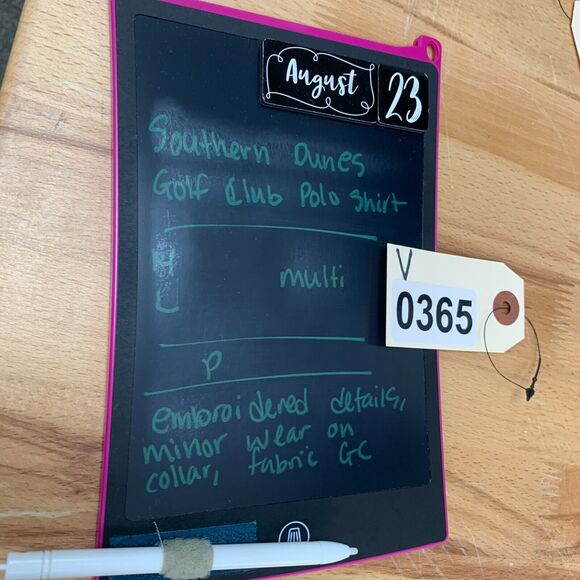 August 23
Southern Dunes
Golf Club Polo Shirt
V
0365
H multi
L
P
embroidered details,
minor wear on
collar, fabric GC